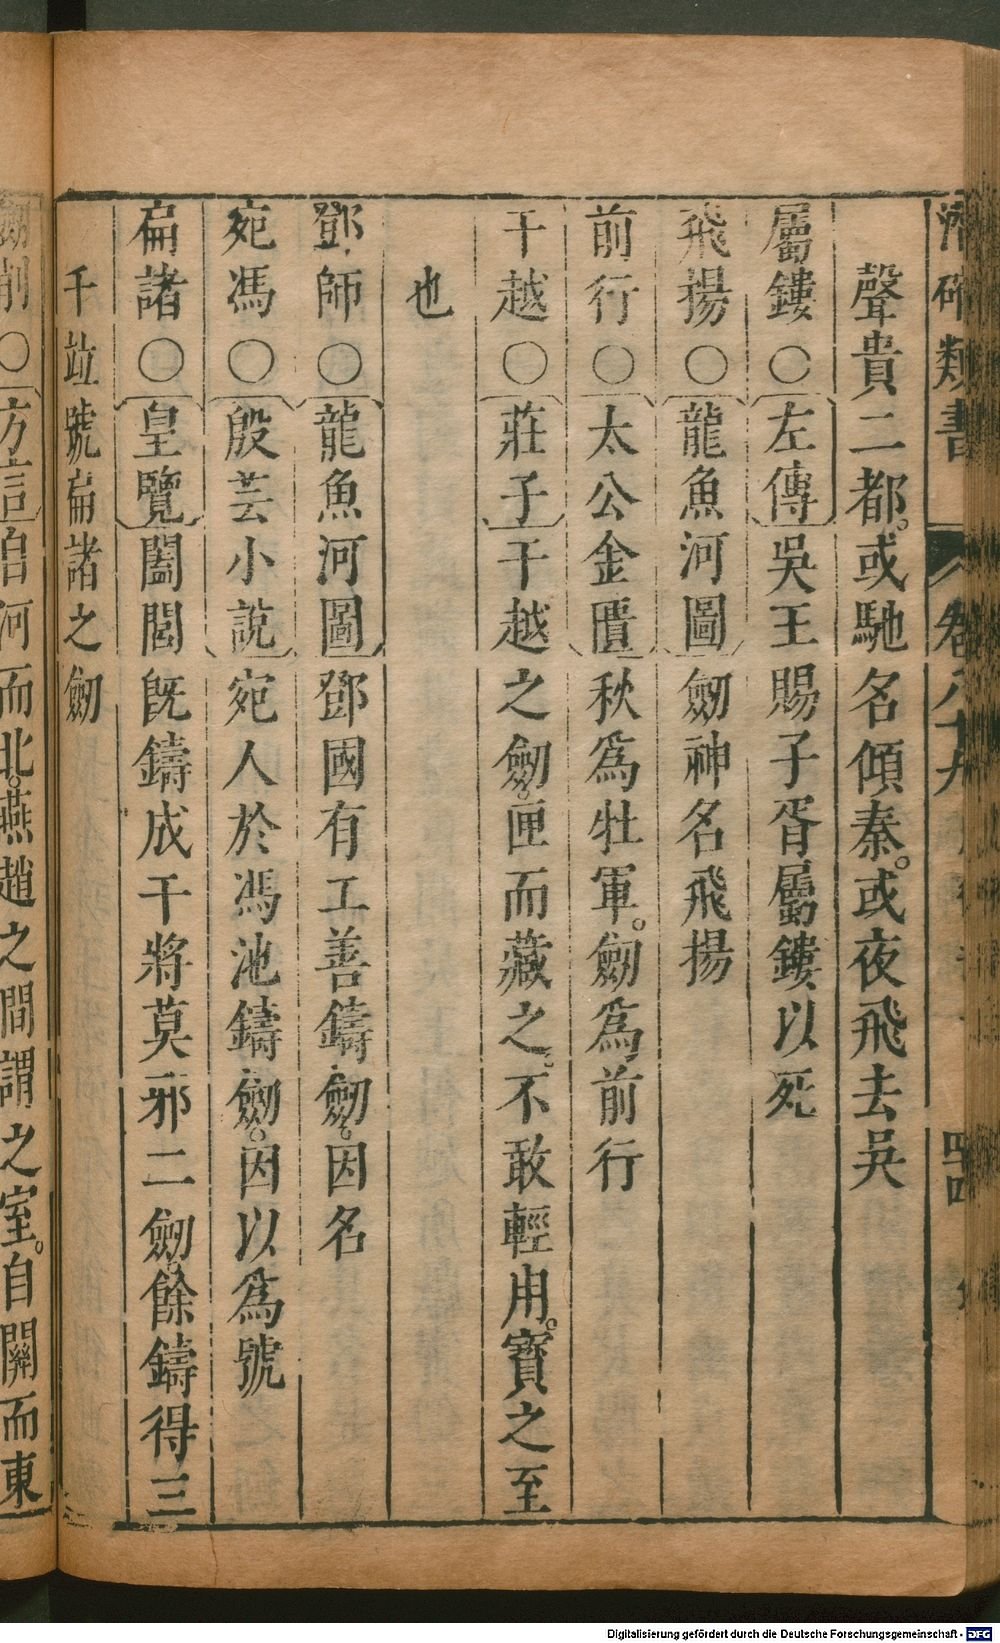 類書 卷八十九 四
聲貴二都。或馳名傾秦。或夜飛去吳
屬鏤○左傳吳王賜子胥屬鏤以死
飛揚○龍魚河圖劒神名飛揚
前行○太公金匱秋爲牡軍。劒爲前行
干越○莊子干越之劒。匣而藏之。不敢輕用。寶之至
也
鄧師○龍魚河圖鄧國有工善鑄劒。因名
宛馮○殷芸小說宛人於馮池鑄劒。因以爲號
扁諸○皇覽闔閭旣鑄成干將莫邪二劒。餘鑄得三
千竝號扁諸之劒
削○方言自河而北。燕趙之間謂之室。自關而東
Digitalisierung gefördert durch die Deutsche Forschungsgemeinschaft - DFG